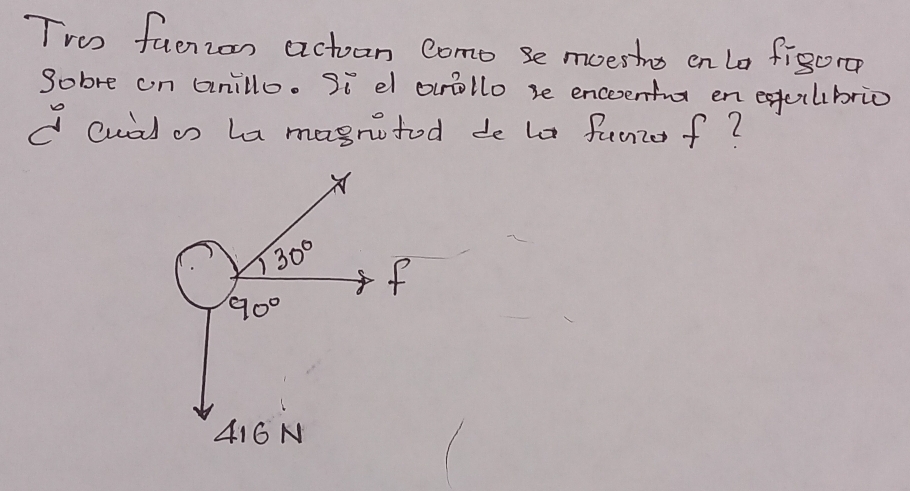 Tres fuerzas actuan como se muestra en la figura
Sobre un anillo. Si el anillo se encuentra en equilibrio
¿ Cuál es la magnitud de la fuerza f ?
30°
f
90°
416 N